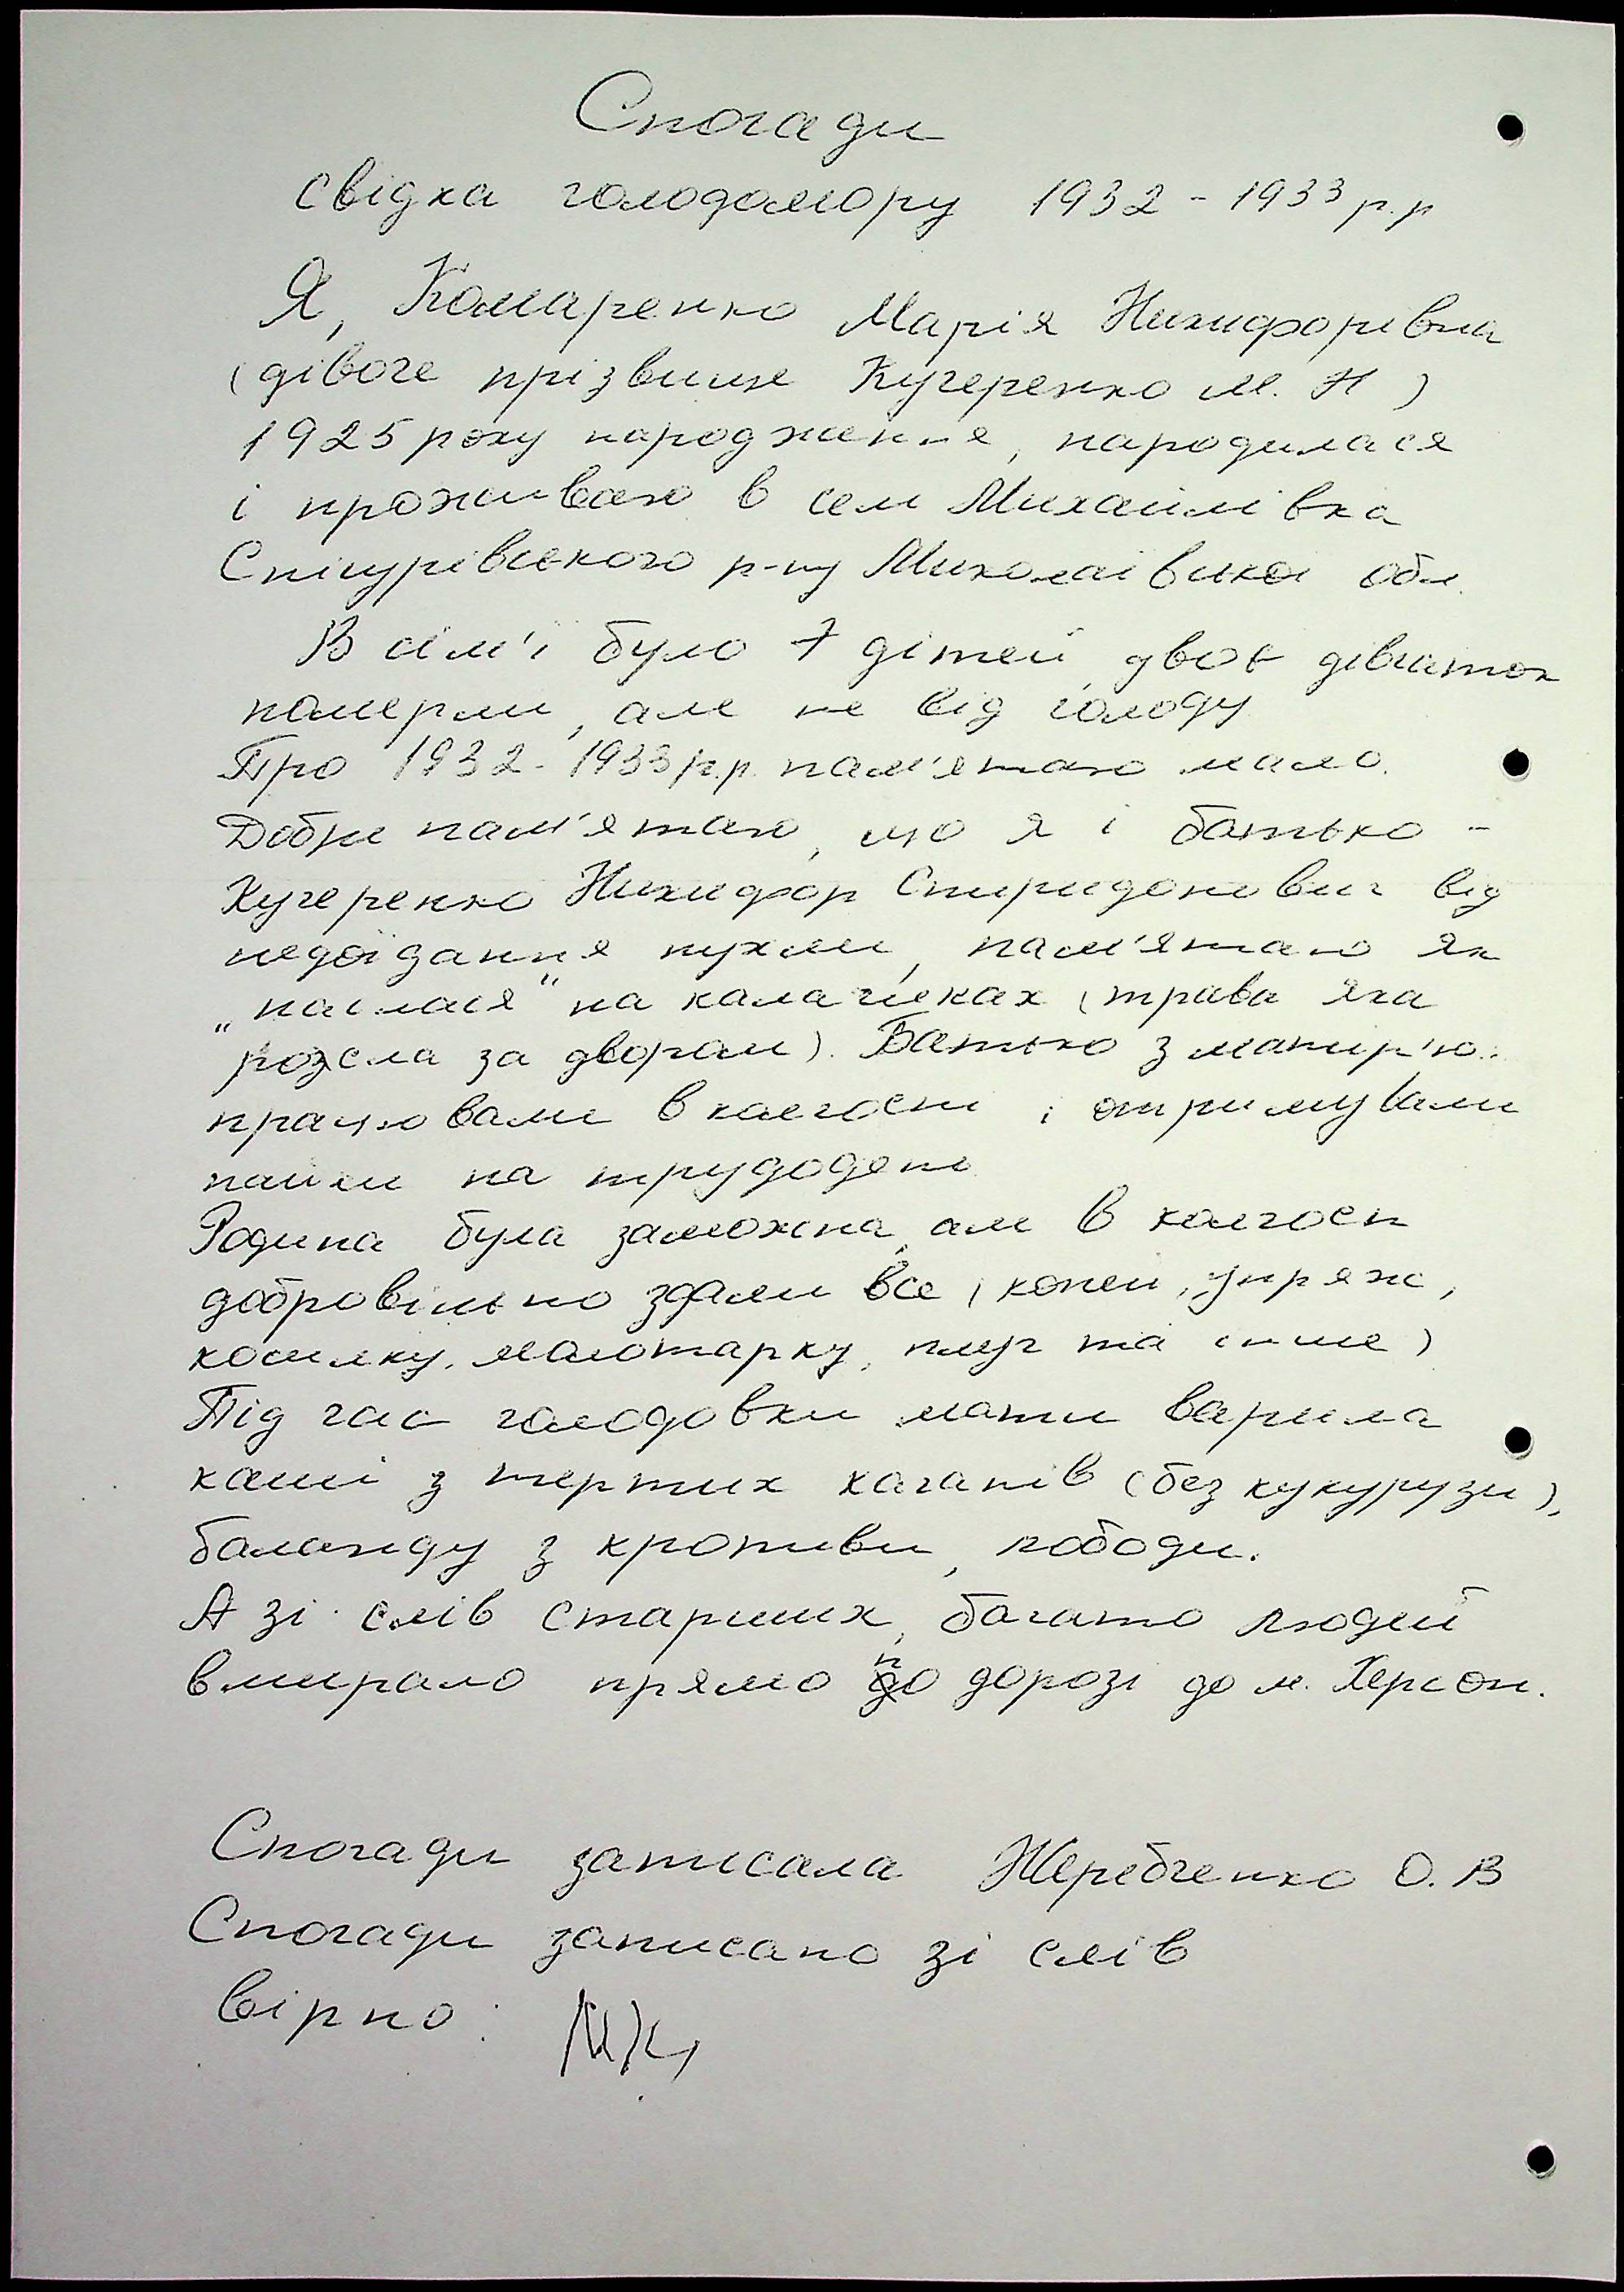 Спогади
свідка голодомору 1932 - 1933 р.р
Я, Комаренко Марія Никифорівна
(дівоче прізвище Кучеренко М. Н)
1925 року народження, народилася
і проживаю в селі Михайлівка
Снігурівського р-ну Миколаївської обл.
В сім'ї було 7 дітей, двоє дівчаток
померли, але не від голоду
Про 1932 - 1933 р.р. пам'ятаю мало.
Добре пам'ятаю, що я і батько -
Кучеренко Никифор Спиридонович від
недоїдання пухли, пам'ятаю як
"паслася" на калачиках (трава яка
росла за двором). Батько з матір'ю
працювали в колгоспі і отримували
пайки на трудодень
Родина була заможна, але в колгосп
добровільно здали все (коней, упряж,
косилку, молотарку, плуг та інше)
Під час голодовки мати варила
каші з тертих качанів (без кукурузи),
баланду з кропиви, лободи.
А зі слів старших, багато людей
вмирало прямо по дорозі до м. Херсон.
Спогади записала Жеребченко О. В
Спогади записано зі слів
вірно: